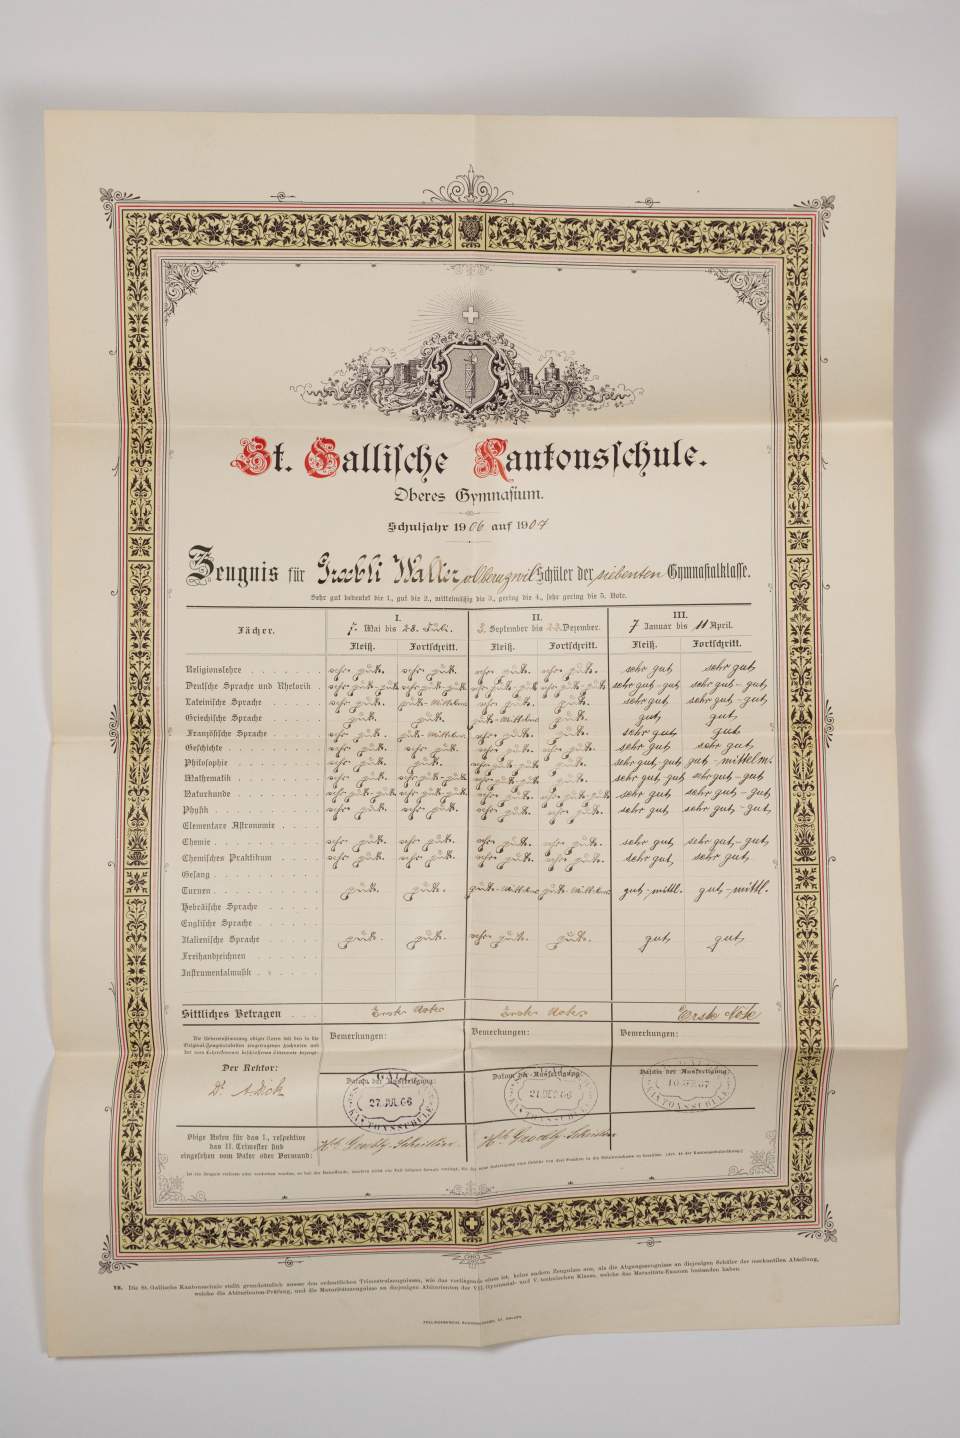 St. Gallische Kantonsschule.
Oberes Gymnasium.
Schuljahr 1906 auf 1907
Zeugnis für Walter v. Oberuzwil Schüler der siebenten Gymnasialklasse.
Sehr gut bedeutet die 1., gut die 2., mittelmäßig die 3., gering die 4., sehr gering die 5. Note.
Fächer. I. II. III.
7. Mai bis 28. Juli. 3. September bis 22. Dezember. 7 Januar bis 11 April.
Fleiß. Fortschritt. Fleiß. Fortschritt. Fleiß. Fortschritt.
Religionslehre sehr gut. sehr gut. sehr gut. sehr gut. sehr gut sehr gut
Deutsche Sprache und Rhetorik sehr gut-gut sehr gut-gut sehr gut-gut sehr gut-gut sehr gut-gut sehr gut-gut
Lateinische Sprache sehr gut. gut-mittelm. sehr gut. gut. sehr gut sehr gut-gut
Griechische Sprache gut. gut. gut-mittelm. gut. gut gut
Französische Sprache sehr gut. gut-mittelm. sehr gut. gut. sehr gut gut
Geschichte sehr gut. sehr gut. sehr gut. sehr gut. sehr gut sehr gut
Philosophie sehr gut. gut. sehr gut-gut gut. sehr gut-gut gut-mittelm.
Mathematik sehr gut. sehr gut-gut sehr gut-gut gut. sehr gut-gut sehr gut-gut
Naturkunde sehr gut-gut sehr gut-gut sehr gut. sehr gut-gut sehr gut sehr gut-gut
Physik sehr gut. sehr gut. sehr gut. sehr gut. sehr gut sehr gut-gut
Elementare Astronomie
Chemie sehr gut. sehr gut. sehr gut. sehr gut. sehr gut sehr gut-gut
Chemisches Praktikum sehr gut. sehr gut. sehr gut. sehr gut. sehr gut sehr gut
Gesang
Turnen gut. gut. gut-mittelm. gut-mittelm. gut-mittl. gut-mittl.
Hebräische Sprache
Englische Sprache
Italienische Sprache gut. gut. sehr gut. gut. gut gut
Freihandzeichnen
Instrumentalmusik
Sittliches Betragen Erste Note Erste Note Erste Note
Die Uebereinstimmung obiger Noten mit den in die
Bemerkungen: Bemerkungen: Bemerkungen:
Der Rektor:
Dr. A. Dick
Datum der Ausfertigung: Datum der Ausfertigung: Datum der Ausfertigung:
27. JUL 06
21. DEZ 06
KANTONSSCHULE KANTONSSCHULE KANTONSSCHULE
Obige Noten für das I., respektive
das II. Trimester sind
eingesehen vom Vater oder Vormund:
78. Die St. Gallische Kantonsschule stellt grundsätzlich ausser den ordentlichen Trimesterzeugnissen, wie das vorliegende eines ist, keine andern Zeugnisse aus, als die Abgangszeugnisse an diejenigen Schüler der merkantilen Abteilung,
welche die Abiturienten-Prüfung, und die Maturitätszeugnisse an diejenigen Abiturienten der VII. Gymnasial- und V. technischen Klasse, welche das Maturitäts-Examen bestanden haben.